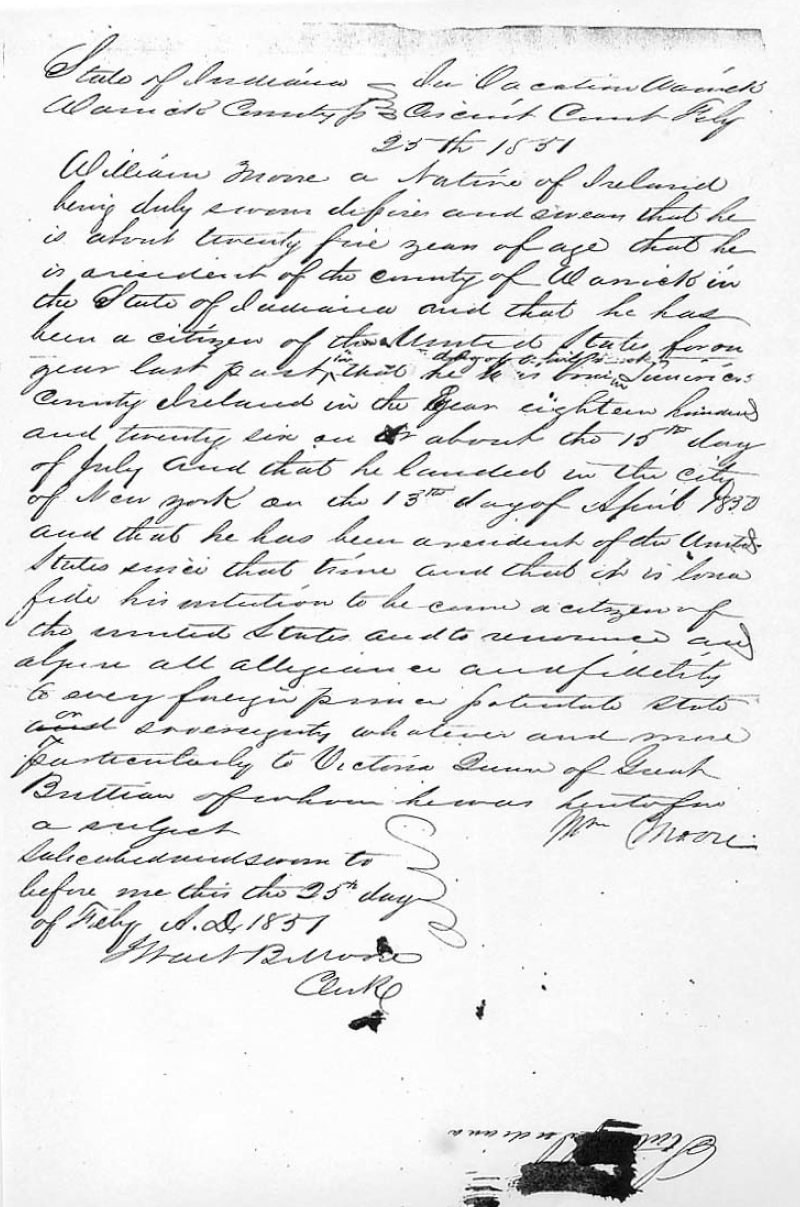 State of Indiana } In Vacation Warrick
Warrick County ss } Circuit Court Feby
25th 1851
William Moore a Native of Ireland
being duly sworn deposes and swears that he
is about twenty five years of age that he
is a resident of the county of Warrick in
the State of Indiana and that he has
been a citizen of the United States for on
year last past, that he was born in Limerick
County Ireland in the year eighteen hundred
and twenty six on or about the 15th day
of July and that he landed in the city
of New york on the 13th day of April 1850
and that he has been a resident of the United
States since that time and that it is bona
fide his intention to be come a citizen of
the united States and to renounce and
abjure all allegiance and fidelity
to every foreign prince potentate state
or
and sovereignty whatever and more
particularly to Victoria Queen of Great
Brittian of whom he was heretofore
a subject
Wm Moore
Subscribed and sworn to
before me this the 25th day
of Feby A.D. 1851
B. Moore
Clerk
State of Indiana